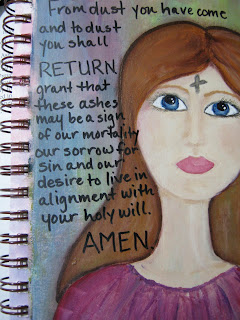 From dust you have come
and to dust
you shall
RETURN
grant that
these ashes
may be a sign
of our mortality
our sorrow for
sin and our
desire to live in
alignment with
your holy will.
AMEN.